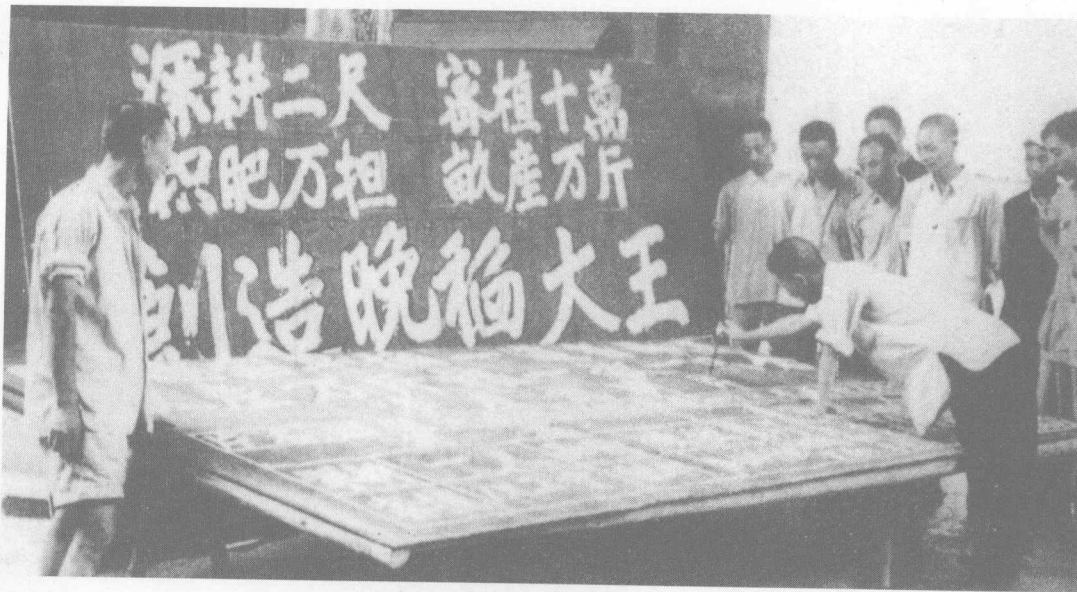 深耕二尺 密植十萬
积肥万担 畝產万斤
創造晚稻大王